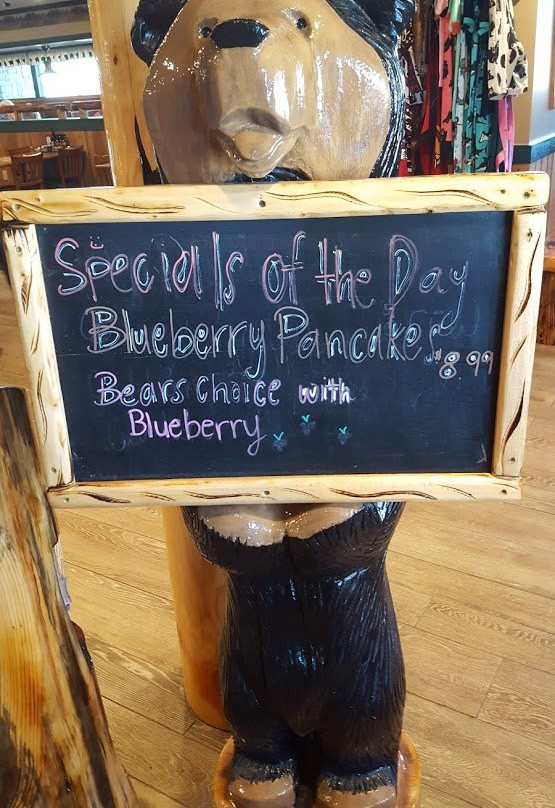 Specials of the Day
Blueberry Pancakes $8.99
Bears Choice with
Blueberry